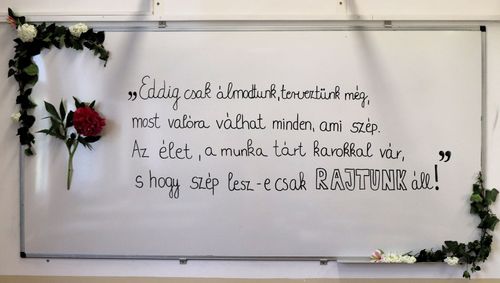 „Eddig csak álmodtunk, terveztünk még,
most valóra válhat minden, ami szép.
Az élet, a munka tárt karokkal vár,
s hogy szép lesz-e csak RAJTUNK áll!”